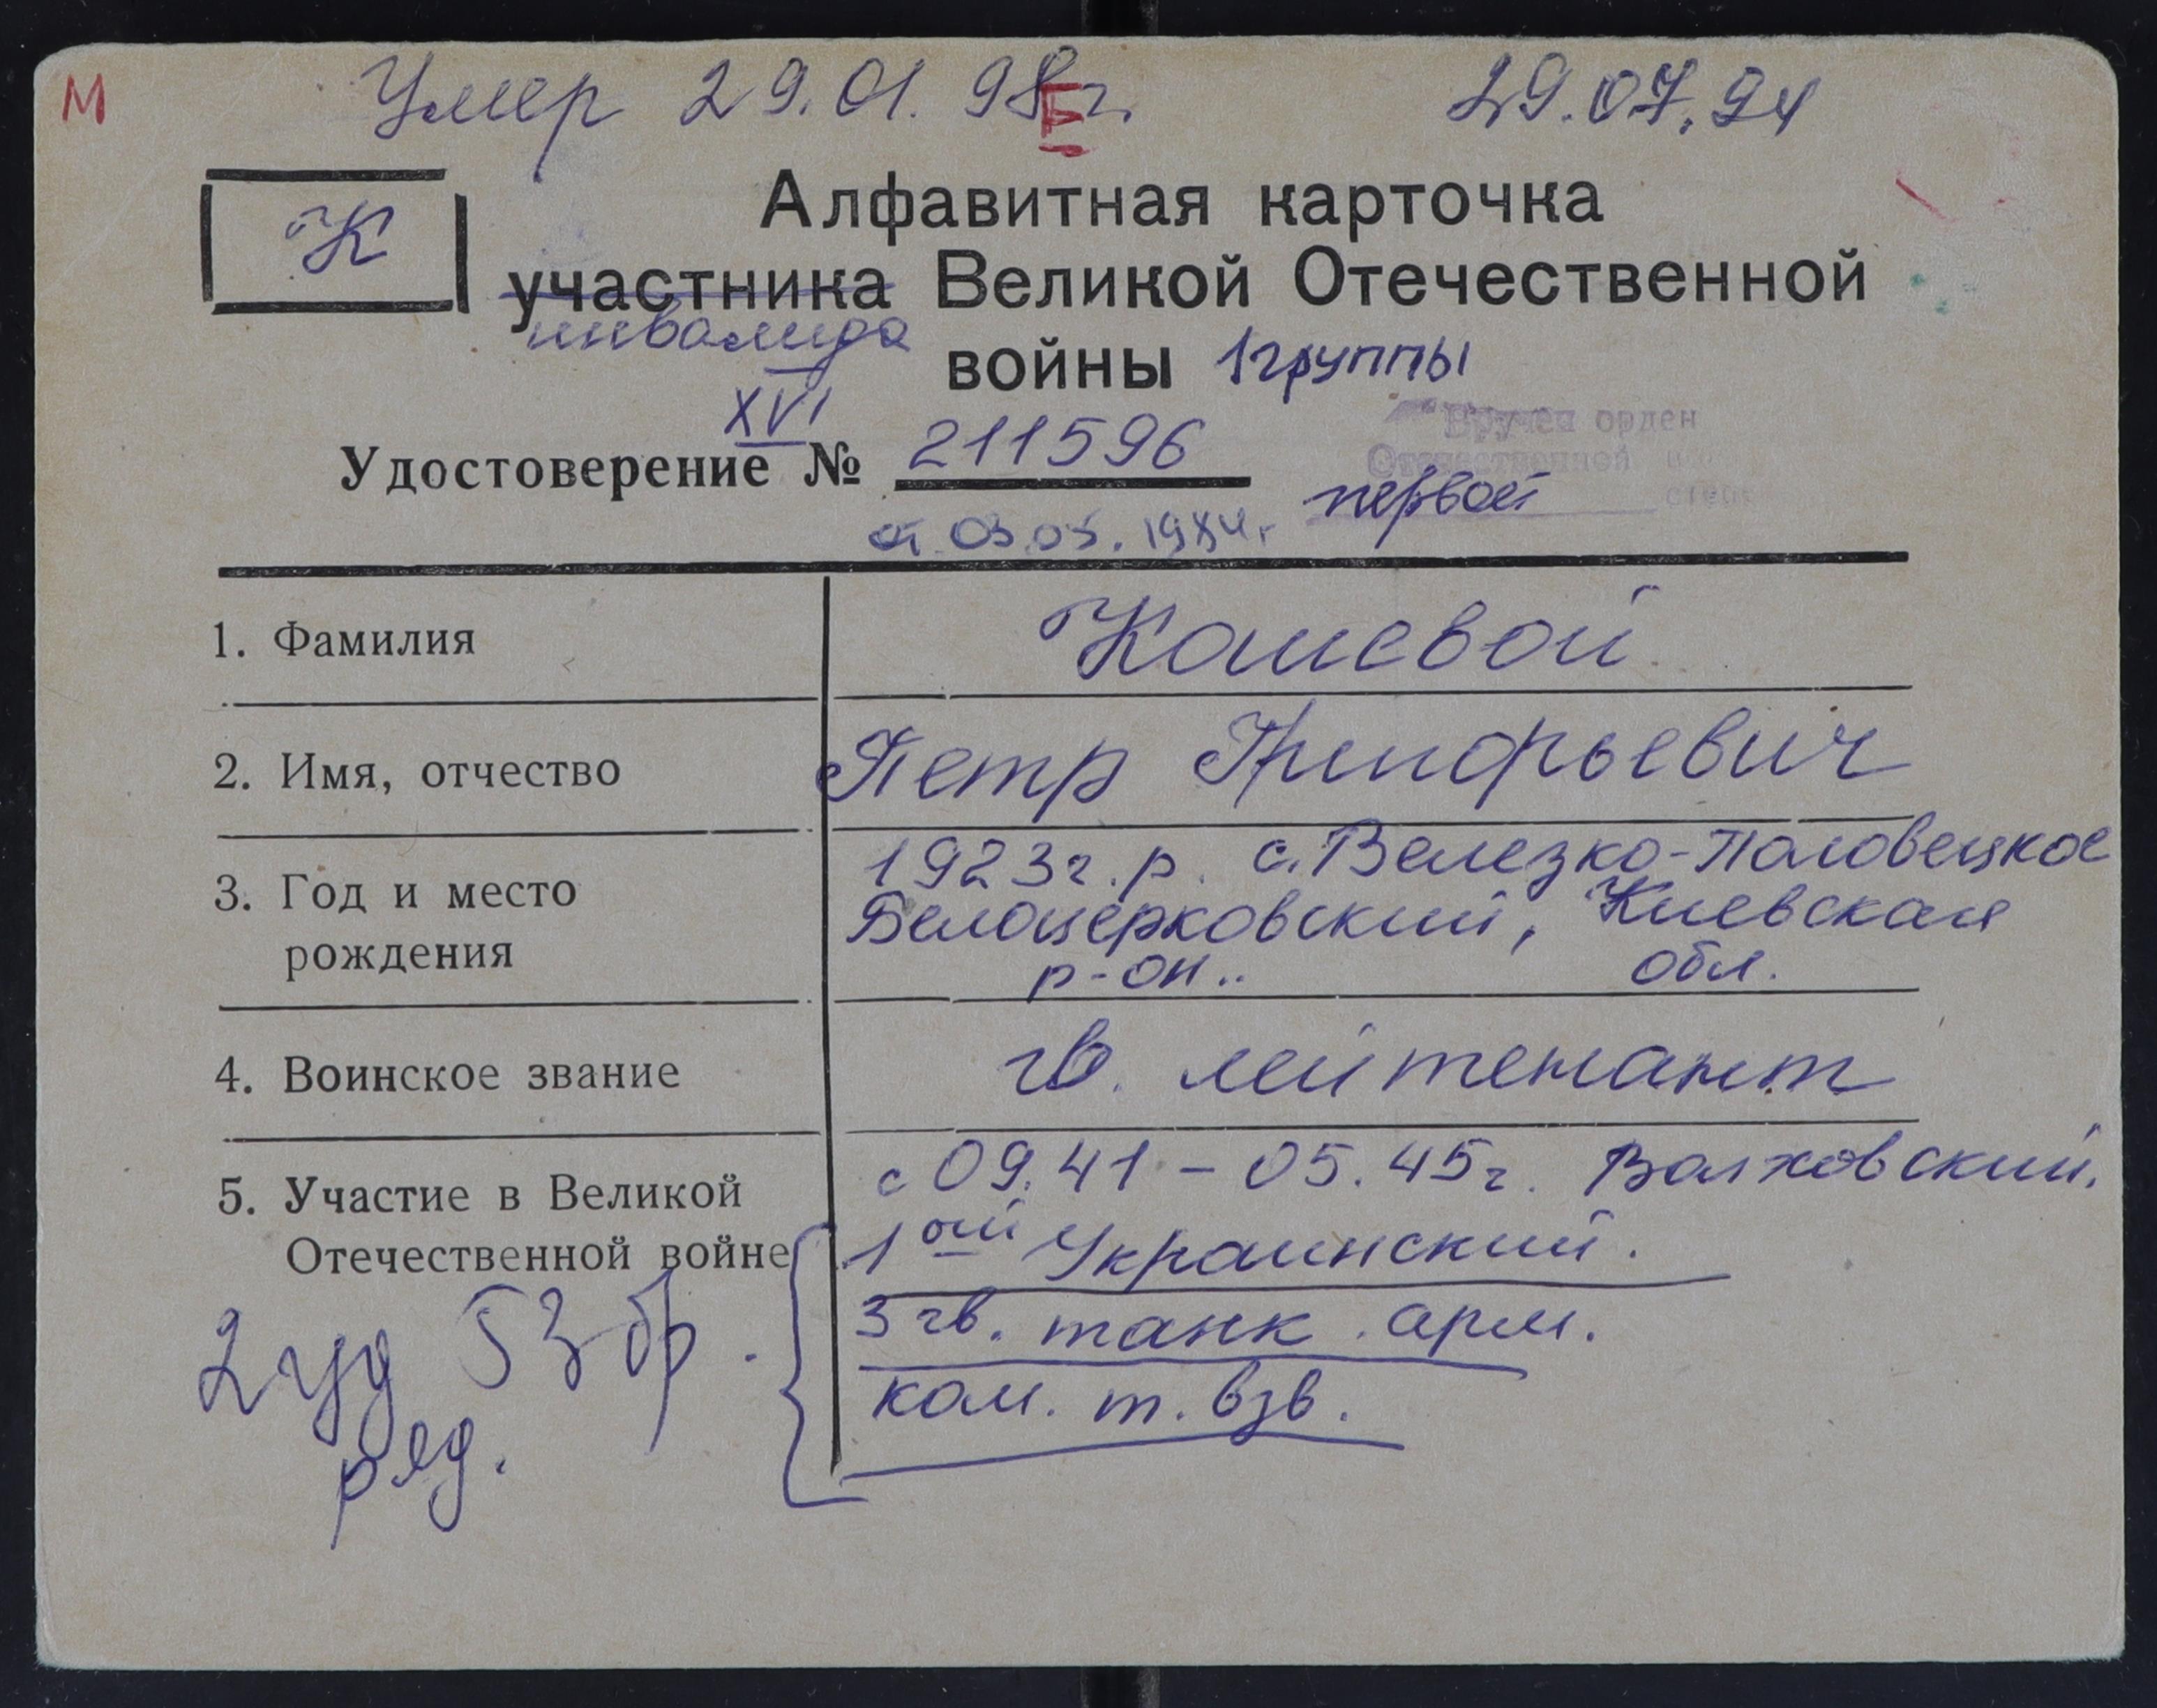 М
Умер 29.01.98г.
29.07.94
К
Алфавитная карточка
участника Великой Отечественной
инвалида
войны 1 группы
XVI
Удостоверение № 211596
от 03.05.1984г.
Вручен орден
Отечественной
первой
1. Фамилия
Кошевой
2. Имя, отчество
Петр Григорьевич
3. Год и место
рождения
1923г.р. с. Велезко-Половецкое
Белоцерковский, Киевская
р-он.. обл.
4. Воинское звание
гв. лейтенант
5. Участие в Великой
Отечественной войне
с 09.41 - 05.45г. Волховский,
1ой Украинский.
3 гв. танк. арм.
ком. т. взв.
2 уд 53 бр.
ряд.